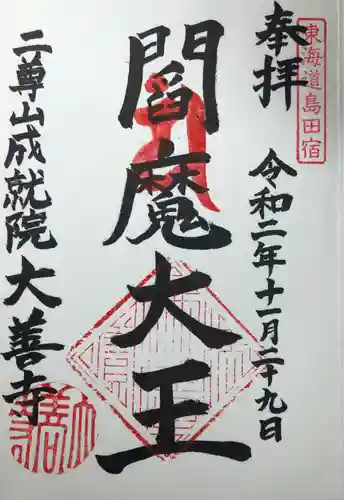 東海道島田宿
奉拝
令和二年十一月二十九日
閻魔大王
二尊山成就院大善寺